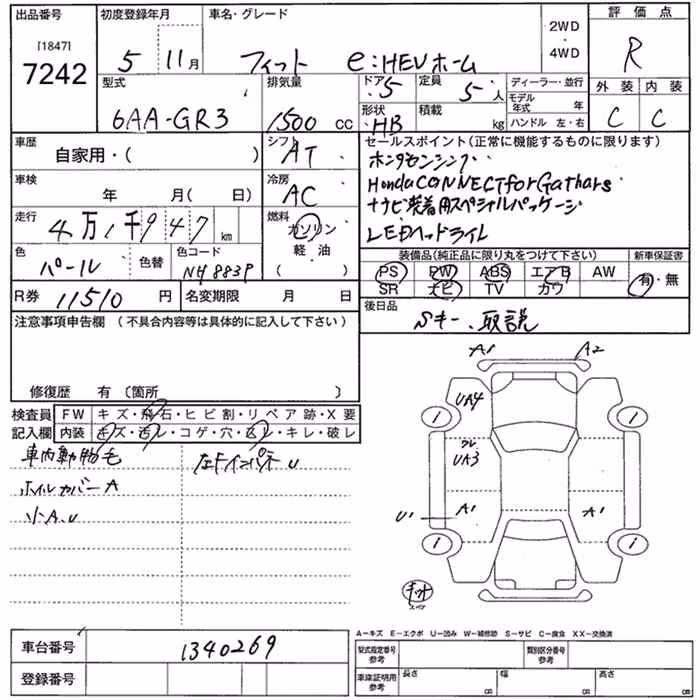 出品番号 初度登録年月 車名・グレード 2WD・4WD 評価点
[1847] 7242 5 11月 フィット e:HEVホーム R
型式 排気量 ドア 定員 ディーラー・並行 外装 内装
6AA-GR3 1500 cc 5 5人 モデル年式 年 C C
形状 HB 積載 kg ハンドル 左・右
車歴 自家用・( ) シフト AT セールスポイント(正常に機能するものに限ります)
車検 年 月( 日) 冷房 AC ホンダセンシング
Honda CONNECT for Gathars
走行 4万1千947km 燃料 ガソリン ナビ装着用スペシャルパッケージ
軽油 LEDヘッドライト
( )
色 パール 色替 色コード NH883P 装備品(純正品に限り丸をつけて下さい) 新車保証書
PS PW ABS エアB AW 有・無
SR ナビ TV カワ
R券 11510円 名変期限 月 日 後日品
Sキー、取説
注意事項申告欄 (不具合内容等は具体的に記入して下さい)
修復歴 有 〔箇所 〕
検査員記入欄 FW キズ・飛石・ヒビ割・リペア跡・X要
内装 キズ・汚レ・コゲ・穴・返リ・キレ・破レ
車内動物毛
ホイルカバーA
小A.U
A1 A2
UA4
i i
UA3
U1 A1 A1
i i
キット
スペア
A-キズ E-エクボ U-凹み W-補修跡 S-サビ C-腐食 XX-交換済
車台番号 1340269 型式指定番号 参考 類別区分番号 参考
登録番号 車庫証明用 参考 長さ cm 幅 cm 高さ cm